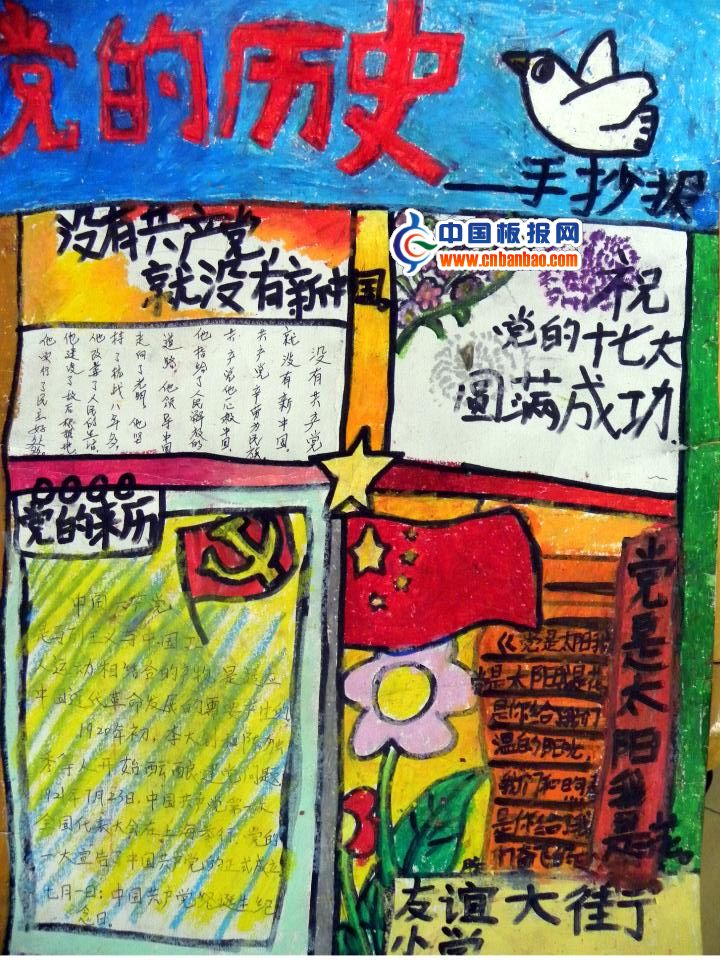 党的历史
——手抄报
中国板报网
www.cnbanbao.com
没有共产党,
就没有新中国。
没有共产党
就没有新中国。
共产党 辛劳为民族
共产党他一心救中国
他指给了人民解放的
道路 他领导中国
走向了光明 他坚
持了抗战八年多
他改善了人民的生活
他建设了敌后根据地
他实行了民主好处多
祝
党的十七大
圆满成功.
党的来历
中国共产党
是马列主义与中国工
人运动相结合的产物,是
中国近代革命发展的
1920年初,李大钊和陈独
秀等人开始酝酿建党问题
1921年7月23日,中国共产党第一次
全国代表大会在上海举行,党的
一大宣告了中国共产党的正式成立
七月一日:中国共产党诞生纪
念日.
党是太阳我是花
《党是太阳我
是太阳我是花
是你给我们
温的阳光,
我们和
是你给我
友谊大街
小学